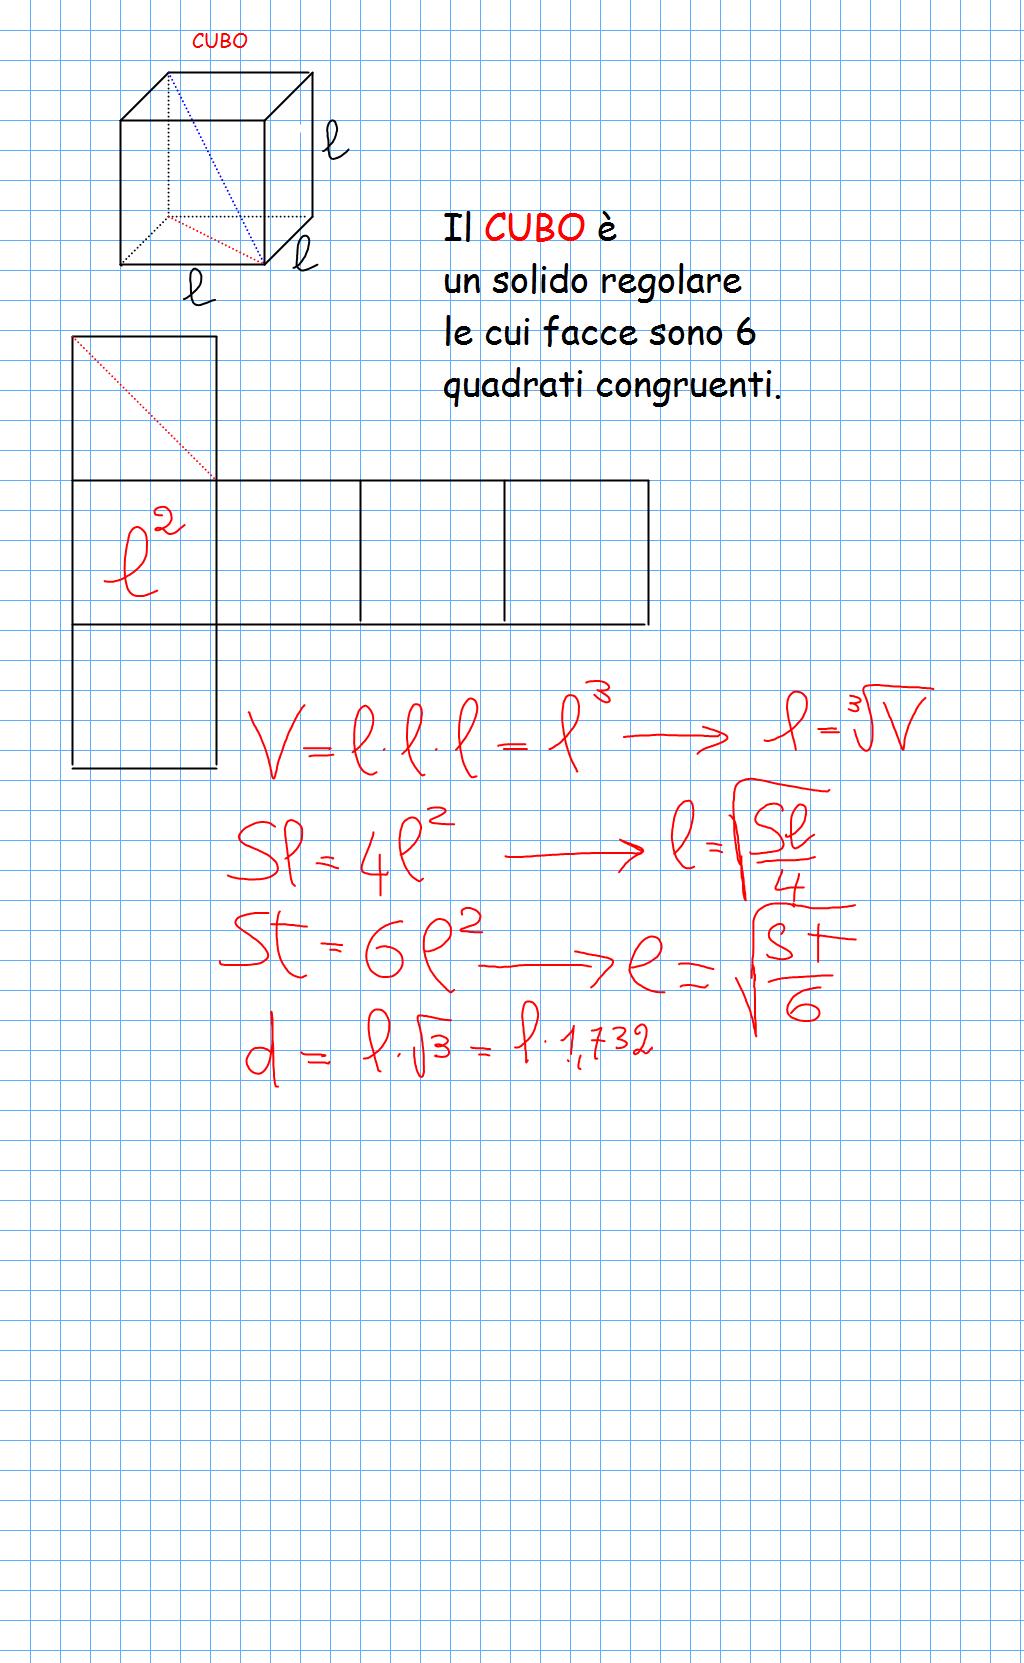 CUBO
ℓ
ℓ
ℓ
Il CUBO è
un solido regolare
le cui facce sono 6
quadrati congruenti.
ℓ²
V = ℓ · ℓ · ℓ = ℓ³ → ℓ = ∛V
Sℓ = 4ℓ² → ℓ = √(Sℓ/4)
St = 6ℓ² → ℓ = √(St/6)
d = ℓ · √3 = ℓ · 1,732